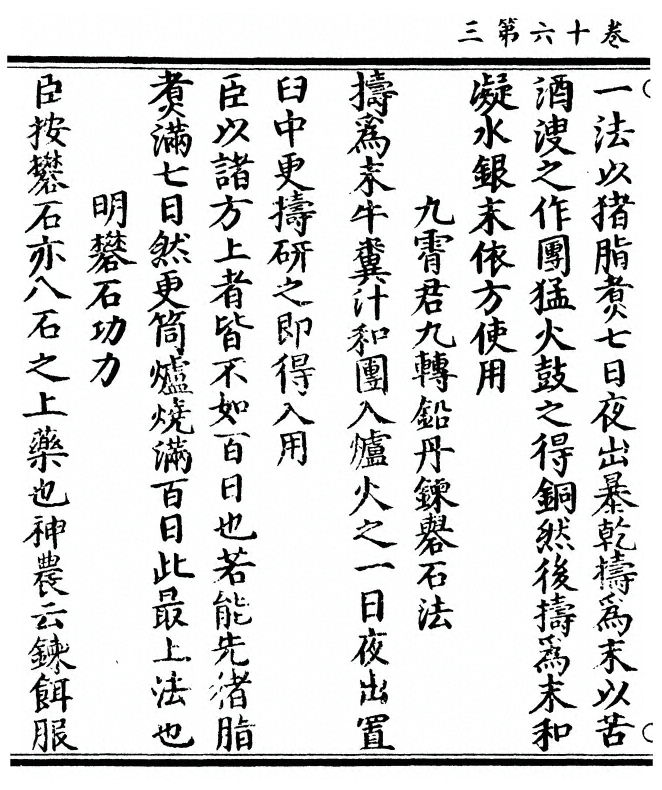 卷十六第三
一法以猪脂煑七日夜出暴乾擣爲末以苦
酒溲之作團猛火鼓之得銅然後擣爲末和
凝水銀末依方使用
九霄君九轉鉛丹鍊礬石法
擣爲末牛糞汁和團入爐火之一日夜出置
臼中更擣研之即得入用
臣以諸方上者皆不如百日也若能先猪脂
煑滿七日然更筒爐燒滿百日此最上法也
明礬石功力
臣按礬石亦八石之上藥也神農云鍊餌服